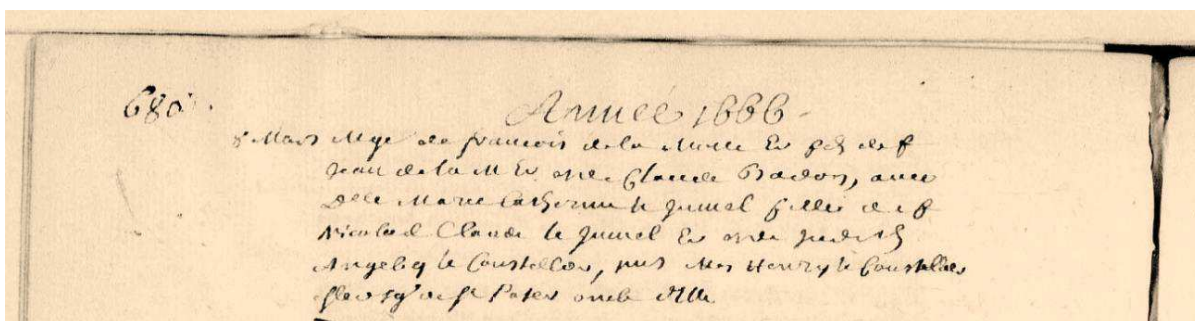 680.
Année 1666.
8 Mars Mge de francois de la Motte Er fils de f
Jean de la M Er et de Claude Badon, avec
Delle Marie Catherine le Jumel fille de f
Nicolas Claude le Jumel Er et de Judith
Angeliq le Coustellier, pns Mes Henry le Coustellier
Sr de St Pater oncle d'Elle